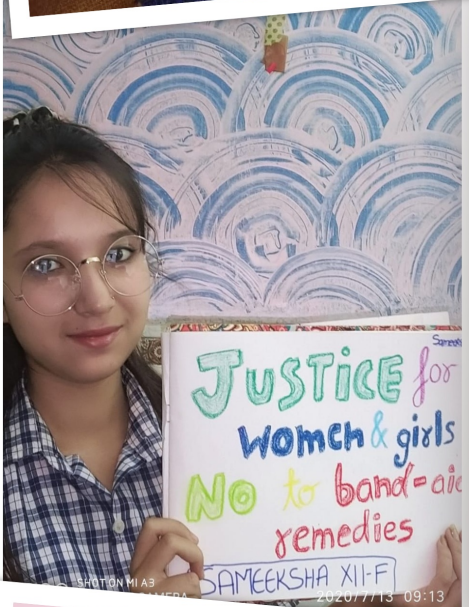 Sameeks
JUSTICE for
women & girls
No to band-aid
remedies
SAMEEKSHA XII-F
SHOT ON MI A3
CAMERA
2020/7/13 09:13